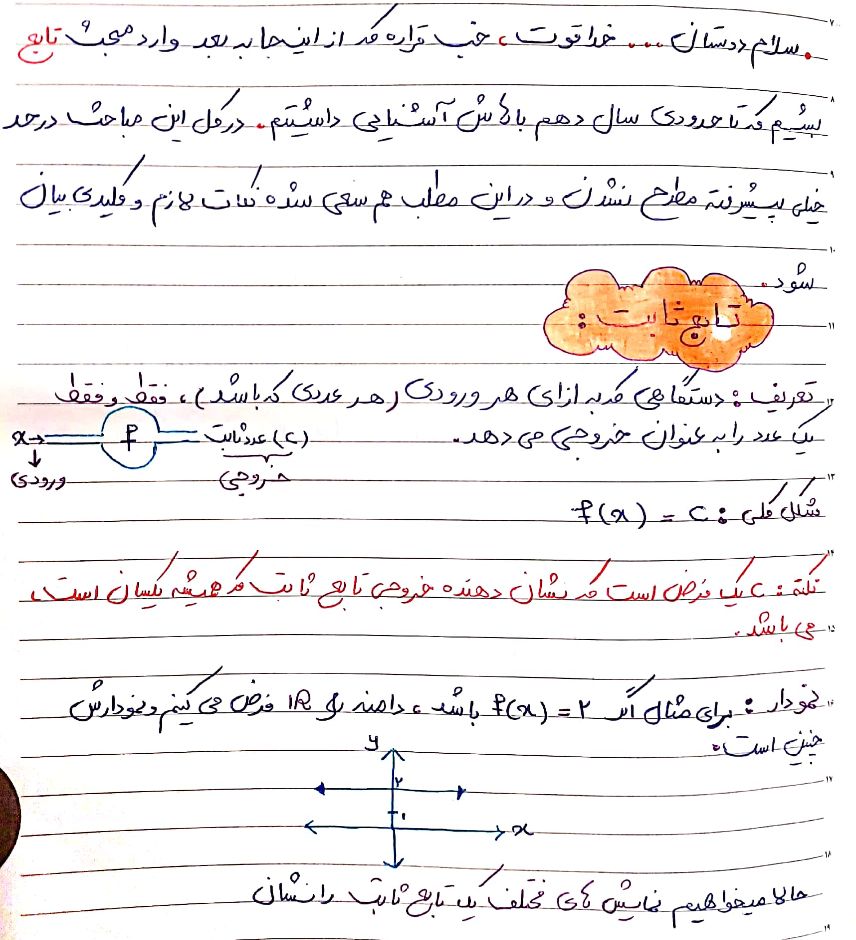 ۷
سلام دوستان ... خدا قوت، خب قراره که از اینجا به بعد وارد مبحث تابع
۸
بشیم که تا حدودی سال دهم باهاش آشنایی داشتیم. در کل این مباحث در حد
۹
خیلی پیشرفته مطرح نشدن و در این مطلب هم سعی شده نکات لازم و کلیدی بیان
۱۰
شود.
تابع ثابت:
۱۱
تعریف: دستگاهی که به ازای هر ورودی (هر عددی که باشد)، فقط و فقط
۱۲
یک عدد را به عنوان خروجی می دهد.
x → f عدد ثابت (C)
ورودی خروجی
۱۳
شکل کلی: f(x) = C
۱۴
نکته: C یک فرض است که نشان دهنده خروجی تابع ثابت که همیشه یکسان است،
می باشد.
۱۵
نمودار: برای مثال اگر f(x) = ۲ باشد، دامنه رو IR فرض می کنیم و نمودارش
۱۶
چنین است:
۱۷
y
۲
۱
x
۱۸
حالا میخواهیم نمایش های مختلف یک تابع ثابت را نشان
۱۹